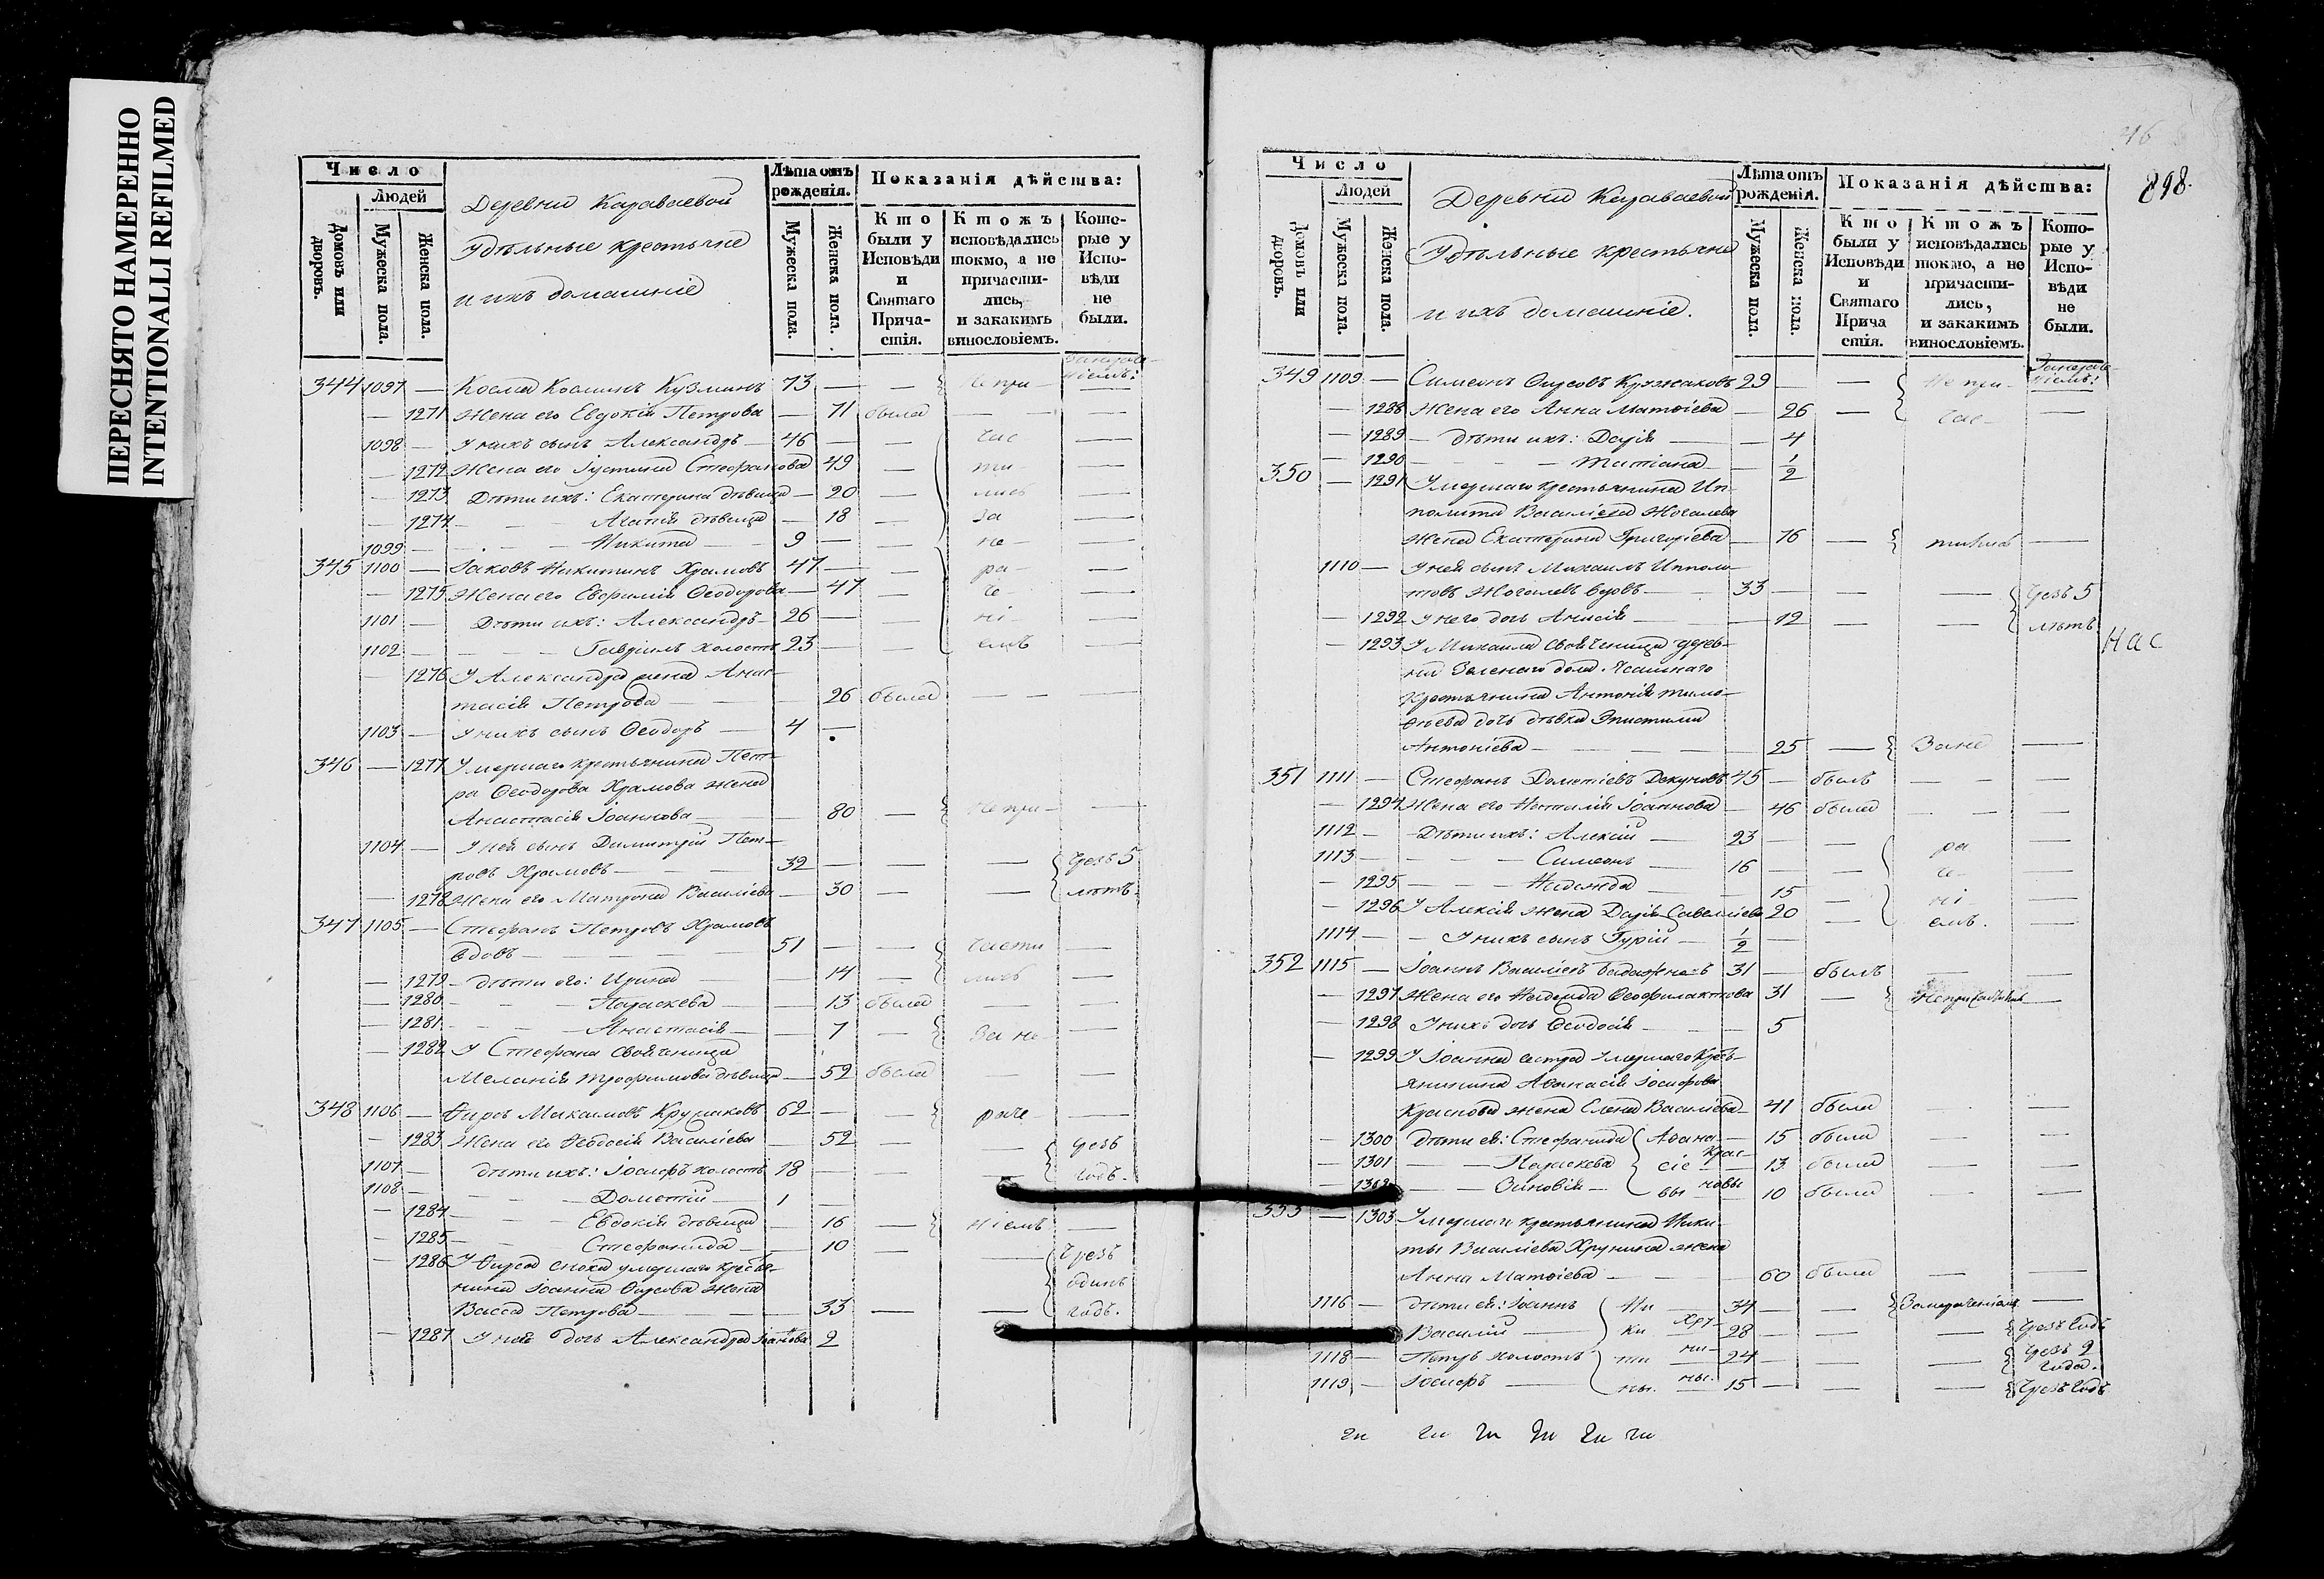 ПЕРЕСНЯТО НАМЕРЕННО
INTENTIONALLI REFILMED
Число
Людей
Домовъ или дворовъ.
Мужеска пола.
Женска пола.
Деревни Караваевой
Удѣльные крестьяне
и ихъ домашніе
Лѣта отъ рожденія.
Мужеска пола.
Женска пола.
Показанія дѣйства:
Кто были у Исповѣди и Святаго Причастія.
Ктожъ исповѣдались токмо, а не причастились, и закакимъ винословіемъ.
Которые у Исповѣди не были.
344 1097 — Косма Косминъ Кузминъ 73 — — Не при—
— 1271 Жена его Евдокія Петрова — 71 была — —
1098 — У нихъ сынъ Александръ — 46 — — час —
— 1272 Жена его Іустина Стефанова 49 — ти —
— 1273 Дѣти ихъ: Екатерина дѣвица — 20 — лись —
— 1274 — Агапія дѣвица — 18 — За —
1099 — Никита — 9 — — не —
345 1100 — Іаковъ Никитинъ Храмовъ 47 — — ра —
— 1275 Жена его Евфимія Ѳеодорова — 47 — че —
1101 — Дѣти ихъ: Александръ 26 — ні —
1102 — Гавріилъ холостъ 23 — — емъ —
— 1276 У Александра жена Анас—
тасія Петрова — 26 была — —
1103 — У нихъ сынъ Ѳеодоръ — 4 —
346 — 1277 Умершаго крестьянина Пет—
ра Ѳеодорова Храмова жена
Анастасія Іоаннова — 80 — Не при— —
1104 — У ней сынъ Димитрій Пет—
ровъ Храмовъ — 32 — — — Чрезъ 5
— 1278 Жена его Матрона Васильева — 30 — — лѣтъ.
347 1105 — Стефанъ Петровъ Храмовъ
вдовъ — 51 — — части —
— 1279 — дѣти его: Ирина — 14 — лись —
— 1280 — Параскева — 13 была — —
— 1281 — Анастасія — 7 — За не— —
— 1282 У Стефана свояченица
Меланія Трофимова дѣвица — 52 была — —
348 1106 — Ѳирсъ Макимовъ 62 — — раче —
— 1283 Жена его Ѳеодосія Васильева — 52 — — Чрезъ
1107 — дѣти ихъ: Іосифъ холостъ 18 — — — годъ.
1108 — Дометій — 1 —
— 1284 — Евдокія дѣвица — 16 — ніемъ —
— 1285 — Стефанида — 10 — — Чрезъ
— 1286 У Ѳирса сноха умершаго крестья—
нина Іоанна Ѳирсова жена одинъ
Васса Петрова — 33 — — годъ.
— 1287 У ней дочь Александра Іоаннова 2
46
898.
Число
Людей
Домовъ или дворовъ.
Мужеска пола.
Женска пола.
Деревни Караваевой
Удѣльные крестьяне
и ихъ домашніе.
Лѣта отъ рожденія.
Мужеска пола.
Женска пола.
Показанія дѣйства:
Кто были у Исповѣди и Святаго Причастія.
Ктожъ исповѣдались токмо, а не причастились, и закакимъ винословіемъ.
Которые у Исповѣди не были.
349 1109 — Симеонъ Ѳирсовъ 29 — — Не при—
— 1288 Жена его Анна Матѳіева — 26 — час— —
— 1289 — дѣти ихъ: Дарія — 4
— 1290 — Татіана — 1/2
350 — 1291 Умершаго крестьянина Ип—
полита Васильева
Жена Екатерина Григорьева — 76 — тились —
1110 — У ней сынъ Михаилъ Иппол—
товъ вдовъ — 33 — — — Чрезъ 5
— 1292 У него дочь Анисія — 12 — — лѣтъ
Нас
— 1293 У Михаила свояченица дерев—
ни Зеленаго дола Ясашнаго
Крестьянина Антонія Тимо—
ѳеева дочь дѣвка Эпистимія
Антоніева — 25 — За не —
351 1111 — Стефанъ Дометіевъ 45 — былъ — —
— 1294 Жена его Наталія Іоаннова — 46 была — —
1112 — Дѣти ихъ: Алексій — 23 — — ра —
1113 — Симеонъ — 16 — — че —
— 1295 — Надежда — 15 — ні —
— 1296 У Алексія жена Дарія Савельева 20 — емъ. —
1114 — У нихъ сынъ Гурій — 1/2 —
352 1115 — Іоаннъ Васильевъ 31 — былъ — —
— 1297 Жена его Ѳеофилактова 31 — Не причастилась —
— 1298 У нихъ дочь Ѳеодосія — 5
— 1299 У Іоанна сестра умершаго Кресть—
янина Аѳанасія Іосифова
Краснова жена Елена Васильева — 41 была — —
— 1300 дѣти ея: Стефанида Аѳана— 15 была — —
— 1301 — Параскева сіе— Крас— 13 была — —
— 1302 — Зиновія — вы новы 10 была — —
353 — 1303 Умершаго крестьянина Ники—
ты Васильева Хрунина жена
Анна Матѳіева — 60 была — —
1116 — дѣти ея: Іоаннъ Ни— 34 — — За нераченіемъ —
Василій — ки Хру— 28 — — — Чрезъ годъ
1118 — Петръ холостъ ти— ни— 24 — — — Чрезъ 2 года.
1119 — Іосифъ — ны. ны. 15 — — — Чрезъ годъ